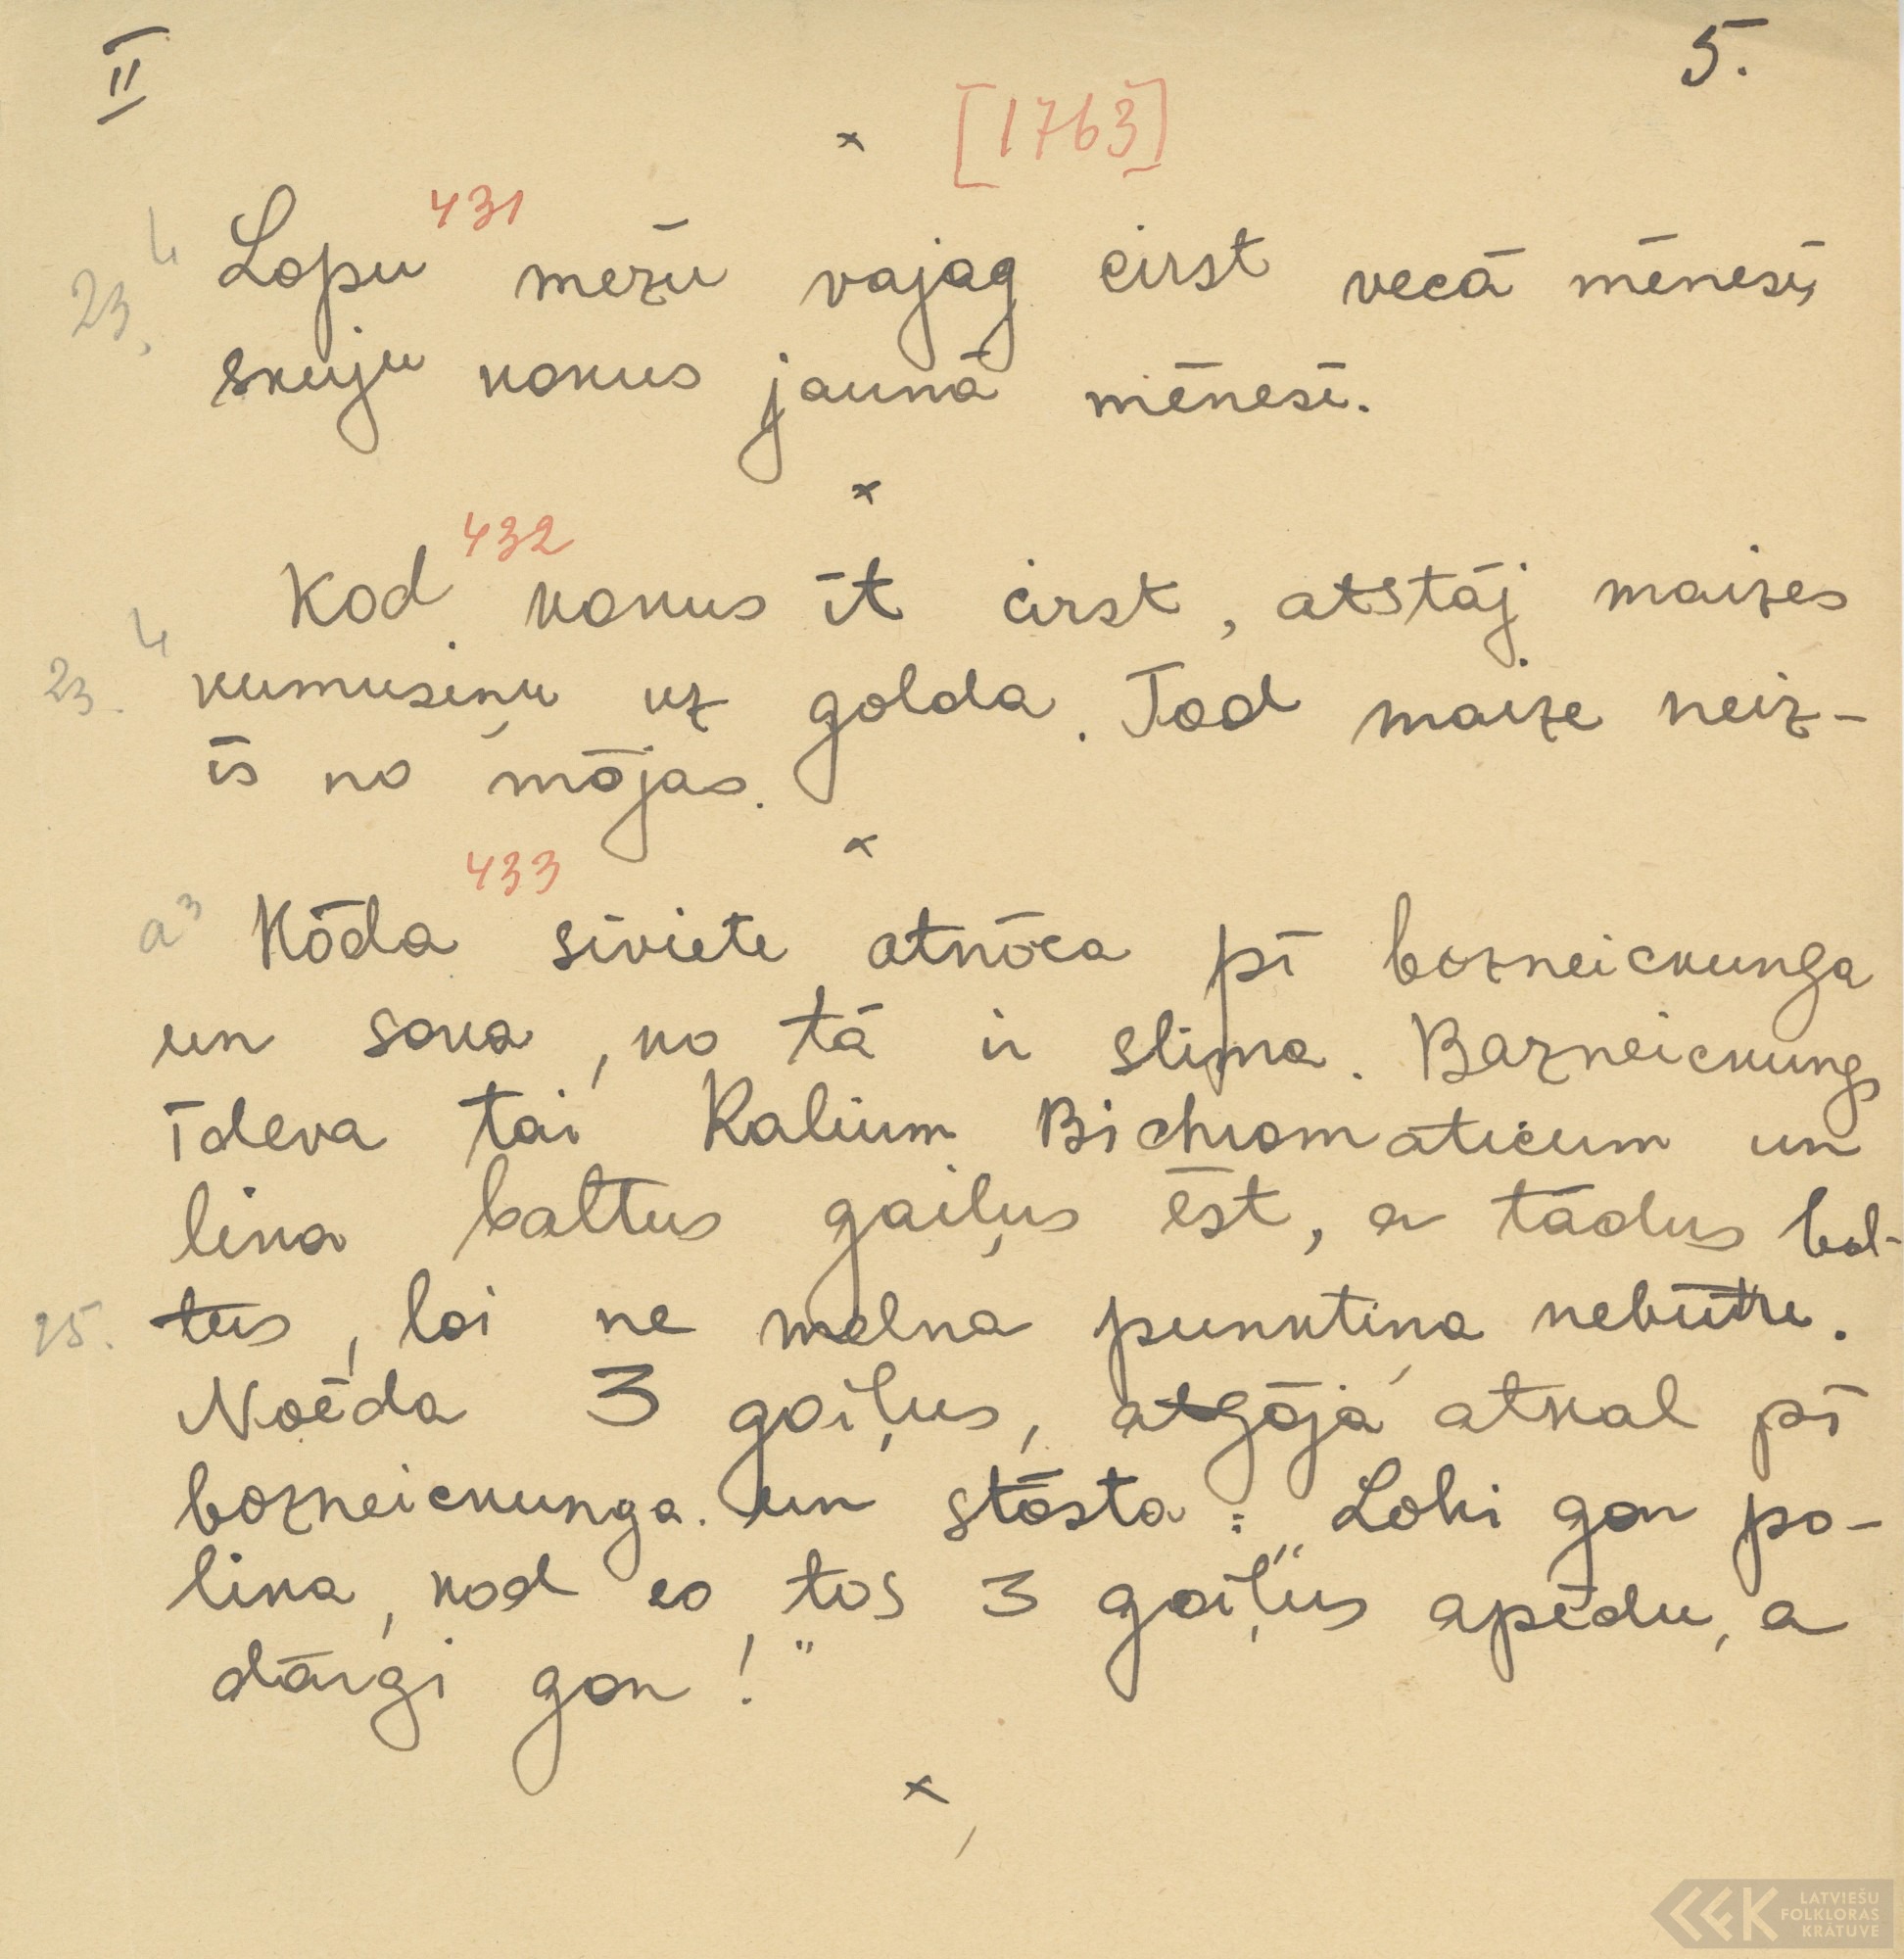 II 5.
× [1763]
431
4 Lopu mežu vajag cirst vecā mēnesī,
23.
skuju kokus jaunā mēnesī.
×
432
Kod kokus īt cirst, atstāj maizes
4
23. kumusiņu uz golda. Tod maize neiz-
īs no mōjas.
×
433
a3 Kōda sīviete atnōca pī bozneickunga
un soka, ko tā ir slima. Bazneickungs
īdeva tai Kalium Bichromaticum un
lika baltus gaiļus ēst, a tādus bal-
25. tus, loi ne melna punktiņa nebūtu.
Noēda 3 goiļus, atgōja atkal pī
bozneickunga un stōsta: „Lobi gon po-
lika, kod es tos 3 goiļus apēdu, a
dārgi gon!"
×
LATVIEŠU
FOLKLORAS
KRĀTUVE